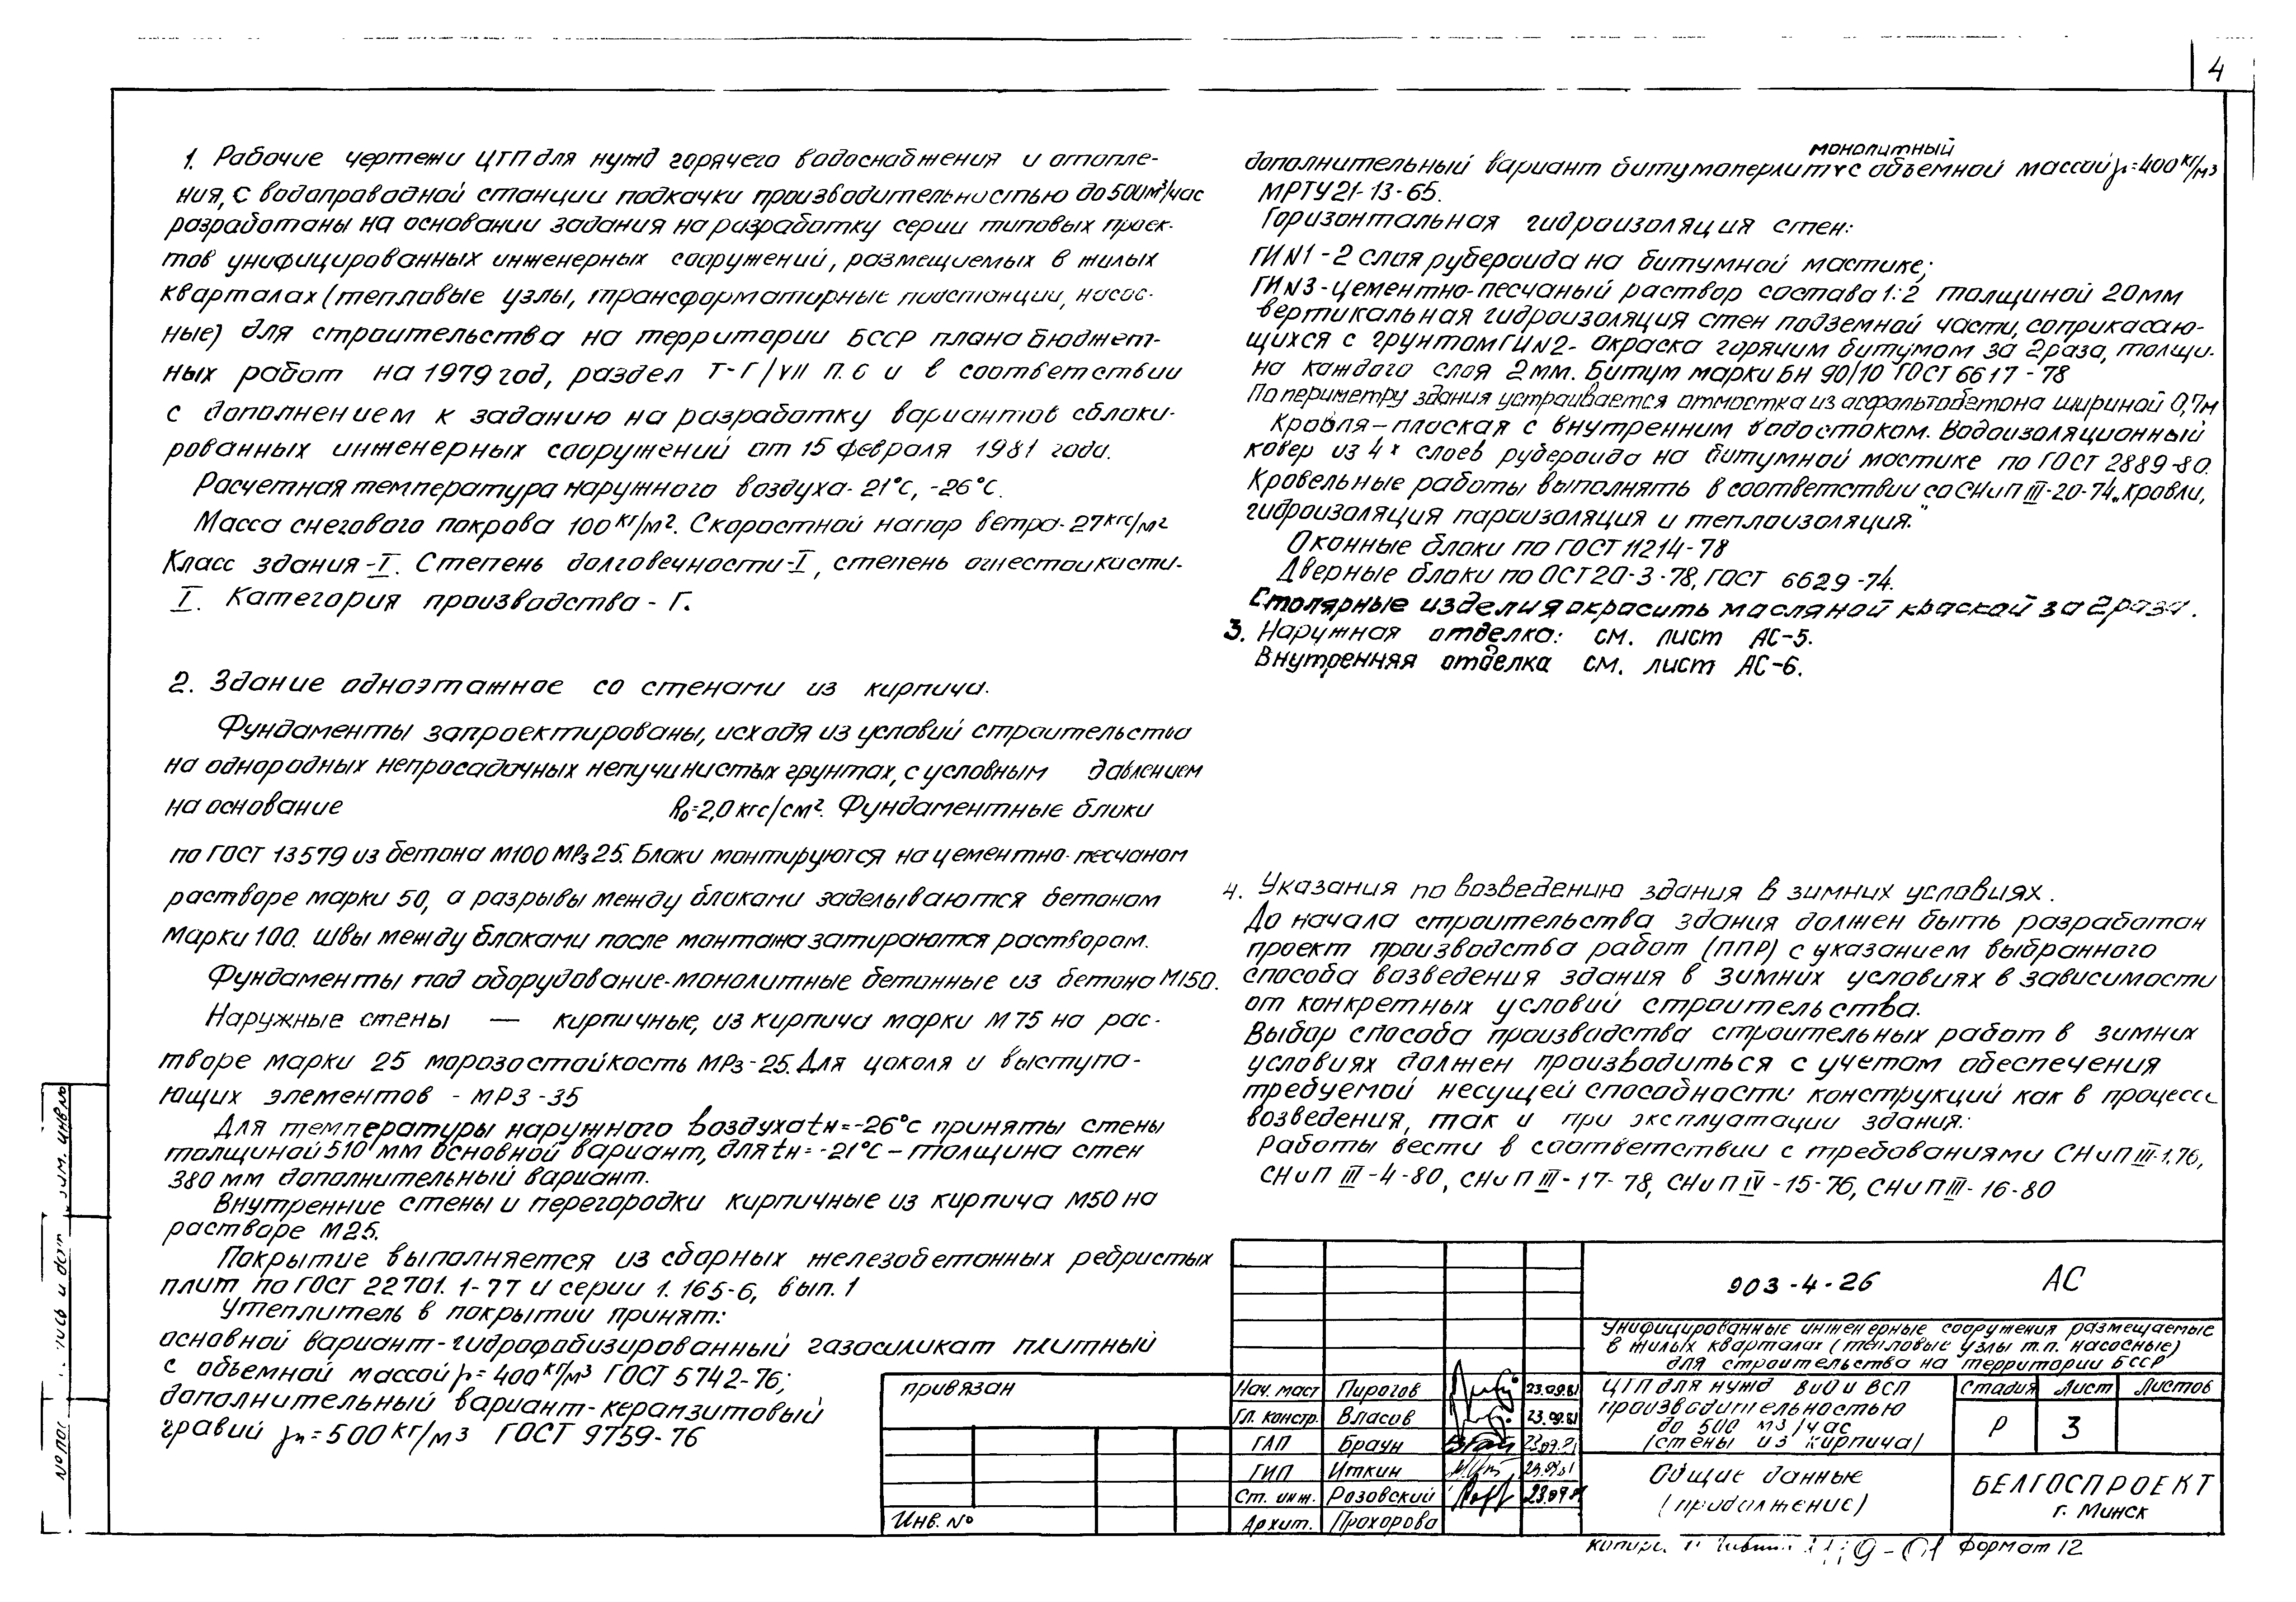 4
1. Рабочие чертежи ЦТП для нужд горячего водоснабжения и отопле-
ния, с водопроводной станции подкачки производительностью до 500м³/час
разработаны на основании задания на разработку серии типовых проек-
тов унифицированных инженерных сооружений, размещаемых в жилых
кварталах (тепловые узлы, трансформаторные подстанции, насос-
ные) для строительства на территории БССР плана бюджет-
ных работ на 1979 год, раздел Т-Г/VII п. 6 и в соответствии
с дополнением к заданию на разработку вариантов сблоки-
рованных инженерных сооружений от 15 февраля 1981 года.
Расчетная температура наружного воздуха- 21°С, -26°С.
Масса снегового покрова 100 кг/м². Скоростной напор ветра- 27кгс/м²
Класс здания -I. Степень долговечности-I, степень огнестойкости-
I. Категория производства - Г.
2. Здание одноэтажное со стенами из кирпича.
Фундаменты запроектированы, исходя из условий строительства
на однородных непросадочных непучинистых грунтах, с условным давлением
на основание R₀=2,0 кгс/см². Фундаментные блоки
по ГОСТ 13579 из бетона М100 МРз 25. Блоки монтируются на цементно-песчаном
растворе марки 50, а разрывы между блоками заделываются бетоном
марки 100. Швы между блоками после монтажа затираются раствором.
Фундаменты под оборудование-монолитные бетонные из бетона М150.
Наружные стены — кирпичные, из кирпича марки М 75 на рас-
творе марки 25 морозостойкость МРз-25. Для цоколя и выступа-
ющих элементов - МРЗ -35
Для температуры наружного воздуха tн=-26°с приняты стены
толщиной 510 мм основной вариант, для tн= -21°С - толщина стен
380 мм дополнительный вариант.
Внутренние стены и перегородки кирпичные из кирпича М50 на
растворе М25.
Покрытие выполняется из сборных железобетонных ребристых
плит по ГОСТ 22701. 1-77 и серии 1. 165-6, вып. 1
Утеплитель в покрытии принят:
основной вариант-гидрофобизированный газосиликат плитный
с объемной массой γ= 400 кг/м³ ГОСТ 5742-76;
дополнительный вариант-керамзитовый
гравий γ=500 кг/м3 ГОСТ 9759-76
монолитный
дополнительный вариант битумоперлит с объемной массой γ=400 кг/м3
МРТУ 21-13-65.
Горизонтальная гидроизоляция стен:
ГИ N1 - 2 слоя рубероида на битумной мастике;
ГИ N3 - цементно-песчаный раствор состава 1:2 толщиной 20мм
вертикальная гидроизоляция стен подземной части, соприкасаю-
щихся с грунтом ГИ N2- окраска горячим битумом за 2 раза, толщи-
на каждого слоя 2 мм. Битум марки БН 90/10 ГОСТ 6617 - 78
По периметру здания устраивается отмостка из асфальтобетона шириной 0,7м
Кровля - плоская с внутренним водостоком. Водоизоляционный
ковер из 4х слоев рубероида на битумной мастике по ГОСТ 2889-80.
Кровельные работы выполнять в соответствии со СНиП III-20-74 „Кровли,
гидроизоляция пароизоляция и теплоизоляция."
Оконные блоки по ГОСТ 11214-78
Дверные блоки по ОСТ 20-3-78, ГОСТ 6629-74.
Столярные изделия окрасить масляной краской за 2 раза.
3. Наружная отделка: см. лист АС-5.
Внутренняя отделка см. лист АС-6.
4. Указания по возведению здания в зимних условиях.
До начала строительства здания должен быть разработан
проект производства работ (ППР) с указанием выбранного
способа возведения здания в зимних условиях в зависимости
от конкретных условий строительства.
Выбор способа производства строительных работ в зимних
условиях должен производиться с учетом обеспечения
требуемой несущей способности конструкций как в процессе
возведения, так и при эксплуатации здания.
Работы вести в соответствии с требованиями СНиП III-1.76,
СНиП III-4-80, СНиП III-17-78, СНиП IV-15-76, СНиП III-16-80
903-4-26 АС
Унифицированные инженерные сооружения размещаемые
в жилых кварталах (тепловые узлы т.п. насосные)
для строительства на территории БССР
привязан
Инв. №
Нач. маст Пирогов 23.09.81
Гл. констр. Власов 23.09.81
ГАП Браун 23.09.81
ГИП Иткин
Ст. инж. Розовский
Архит. Прохорова
ЦТП для нужд ВИО и ВСП
производительностью
до 500 м3/час
(стены из кирпича)
Стадия Лист Листов
Р 3
Общие данные
(продолжение)
БЕЛГОСПРОЕКТ
г. Минск
Формат 12